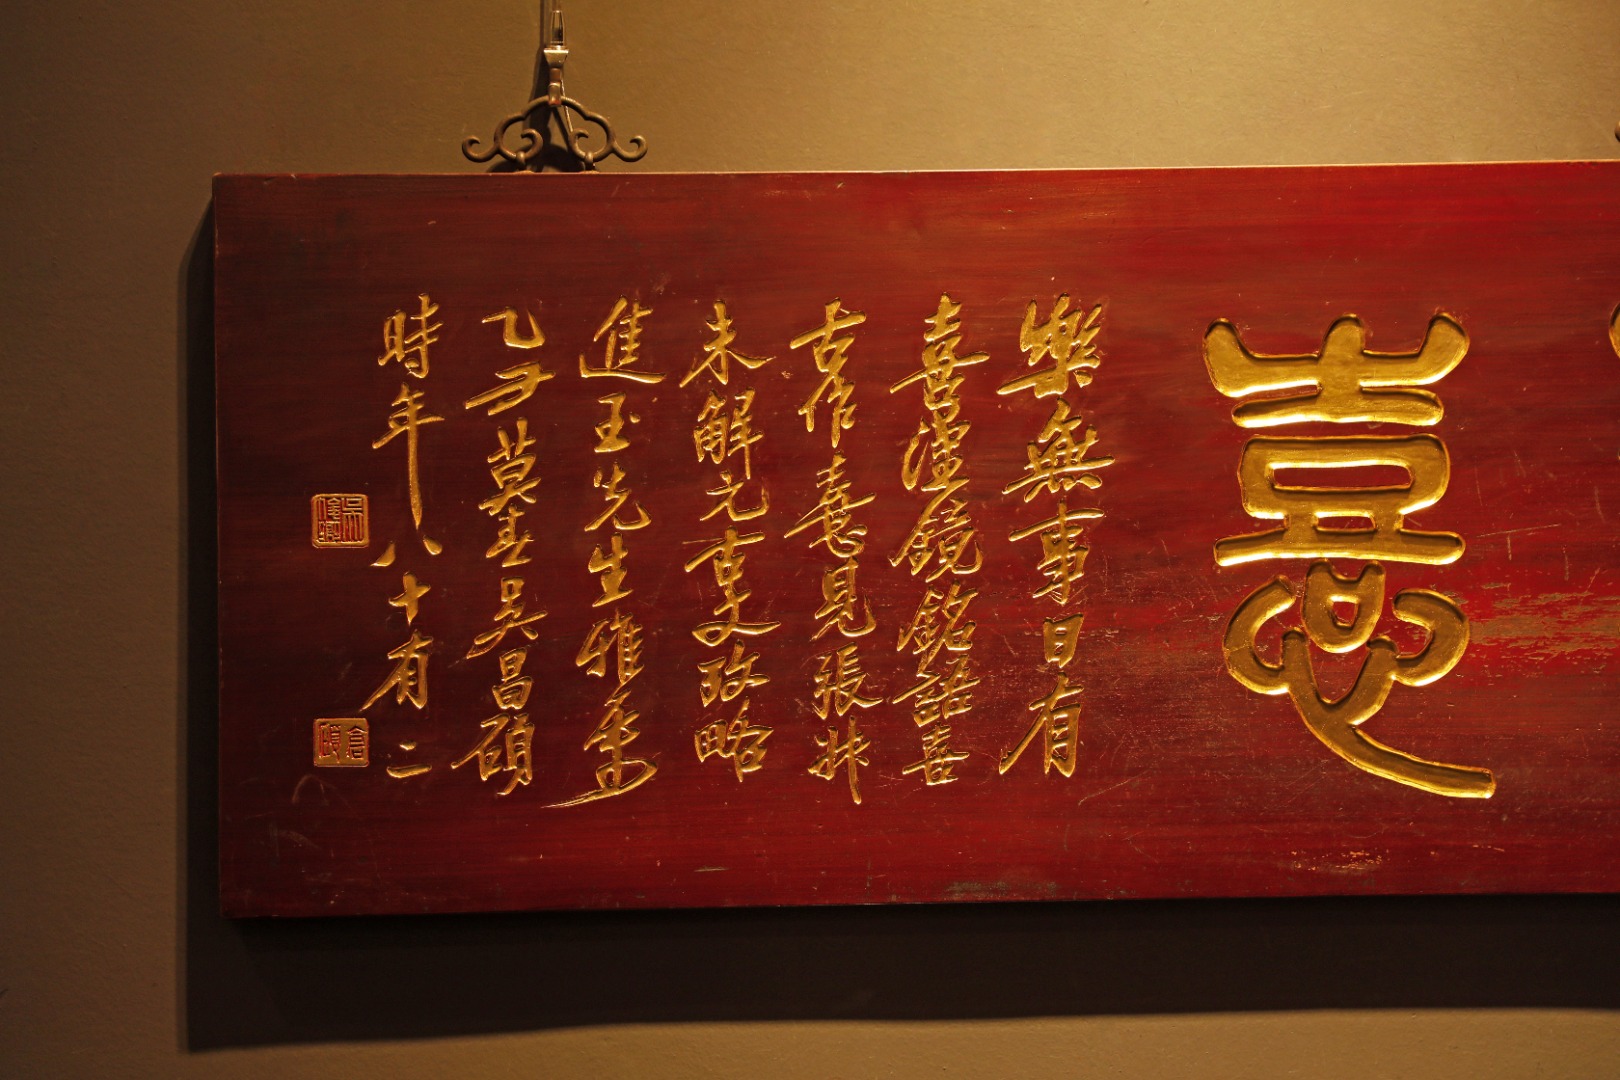 憙
樂無事日有
喜漢鏡銘語喜
古作憙見張叔
未解元文考略
進玉先生雅屬
乙丑莫春吳昌碩
時年八十有二
吳俊卿
倉碩